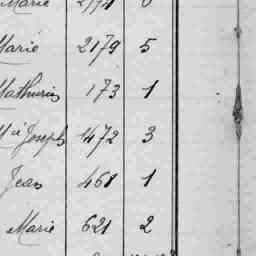 Marie
Marie 2179 5
Mathurin 173 1
Mie Joseph 1472 3
Jean 461 1
Marie 621 2